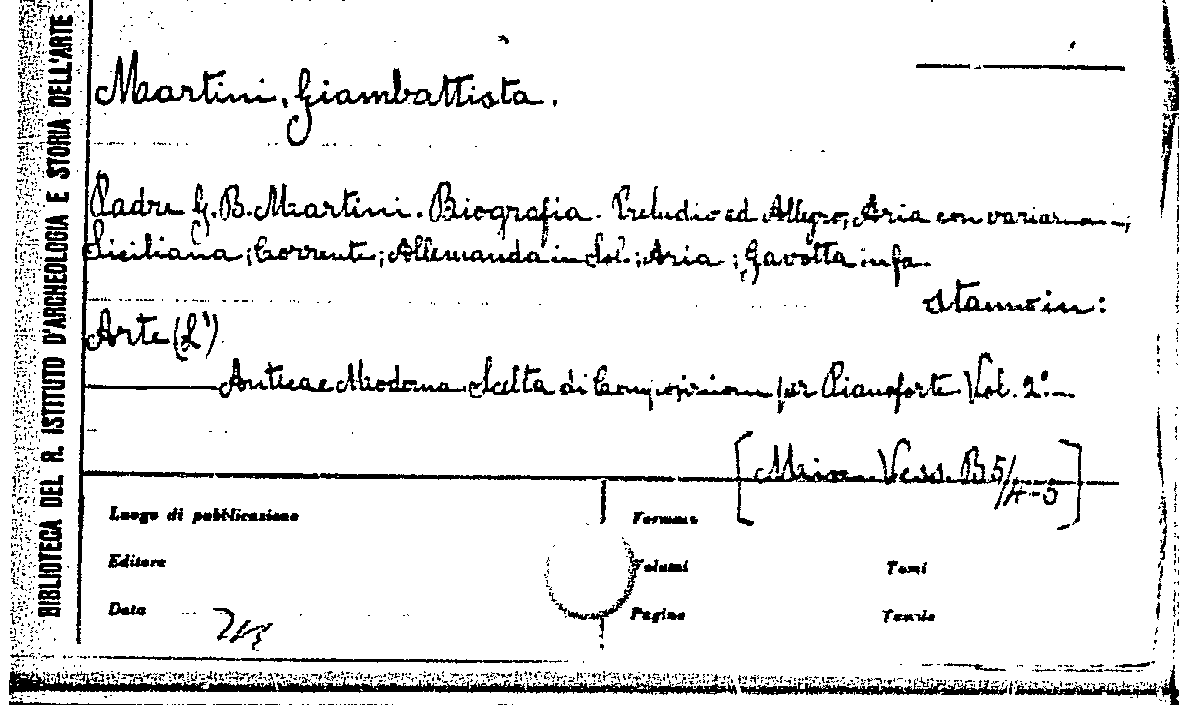 BIBLIOTECA DEL R. ISTITUTO D'ARCHEOLOGIA E STORIA DELL'ARTE
Martini, Giambattista.
Padre G. B. Martini. Biografia. Preludio ed Allegro; Aria con variazioni;
Siciliana; Corrente; Allemanda in Sol.; Aria; Gavotta in fa.
stanno in:
Arte (L')
Antica e Moderna Scelta di Composizioni per Pianoforte Vol. 2º.
[Vess. B 5/4-5]
Luogo di pubblicazione
Formato
Editore
Volumi
Tomi
Data
Pagine
Tavole